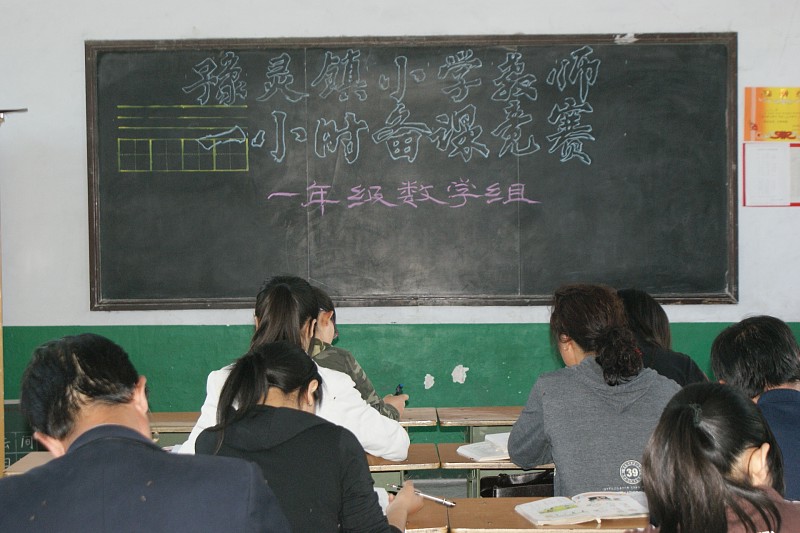 豫灵镇小学教师
一小时备课竞赛
一年级数学组
39